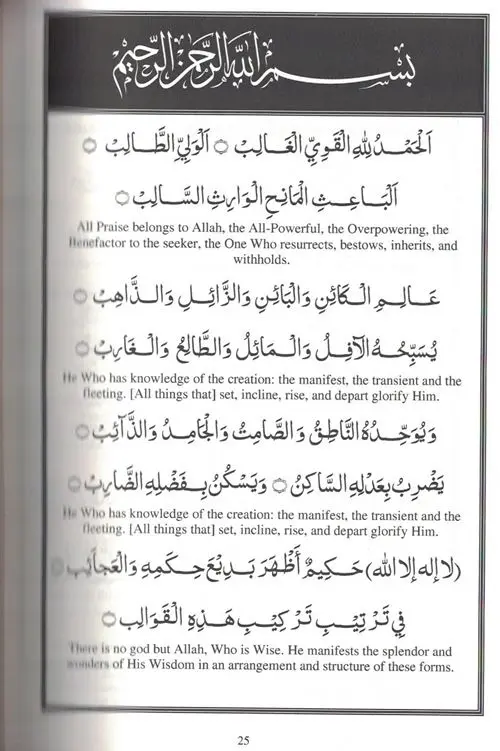 بِسْمِ اللهِ الرَّحْمٰنِ الرَّحِيْمِ
اَلْحَمْدُ لِلّٰهِ الْقَوِيِّ الْغَالِبْ ۞ اَلْوَلِيِّ الطَّالِبْ ۞
اَلْبَاعِثِ الْمَانِحِ الْوَارِثِ السَّالِبْ ۞
All Praise belongs to Allah, the All-Powerful, the Overpowering, the
Benefactor to the seeker, the One Who resurrects, bestows, inherits, and
withholds.
عَالِمِ الْكَائِنِ وَالْبَائِنِ وَالزَّائِلِ وَالذَّاهِبْ ۞
يُسَبِّحُهُ الْآفِلُ وَالْمَائِلُ وَالطَّالِعُ وَالْغَارِبْ ۞
He Who has knowledge of the creation: the manifest, the transient and the
fleeting. [All things that] set, incline, rise, and depart glorify Him.
وَيُوَحِّدُهُ النَّاطِقُ وَالصَّامِتُ وَالْجَامِدُ وَالذَّآئِبْ ۞
يَضْرِبُ بِعَدْلِهِ السَّاكِنُ ۞ وَيَسْكُنُ بِفَضْلِهِ الضَّارِبْ ۞
He Who has knowledge of the creation: the manifest, the transient and the
fleeting. [All things that] set, incline, rise, and depart glorify Him.
(لا إله إلا الله) حَكِيمٌ أَظْهَرَ بَدِيْعَ حِكَمِهِ وَالْعَجَآئِبْ ۞
فِي تَرْتِيْبِ تَرْكِيْبِ هَذِهِ الْقَوَالِبْ ۞
There is no god but Allah, Who is Wise. He manifests the splendor and
wonders of His Wisdom in an arrangement and structure of these forms.
25